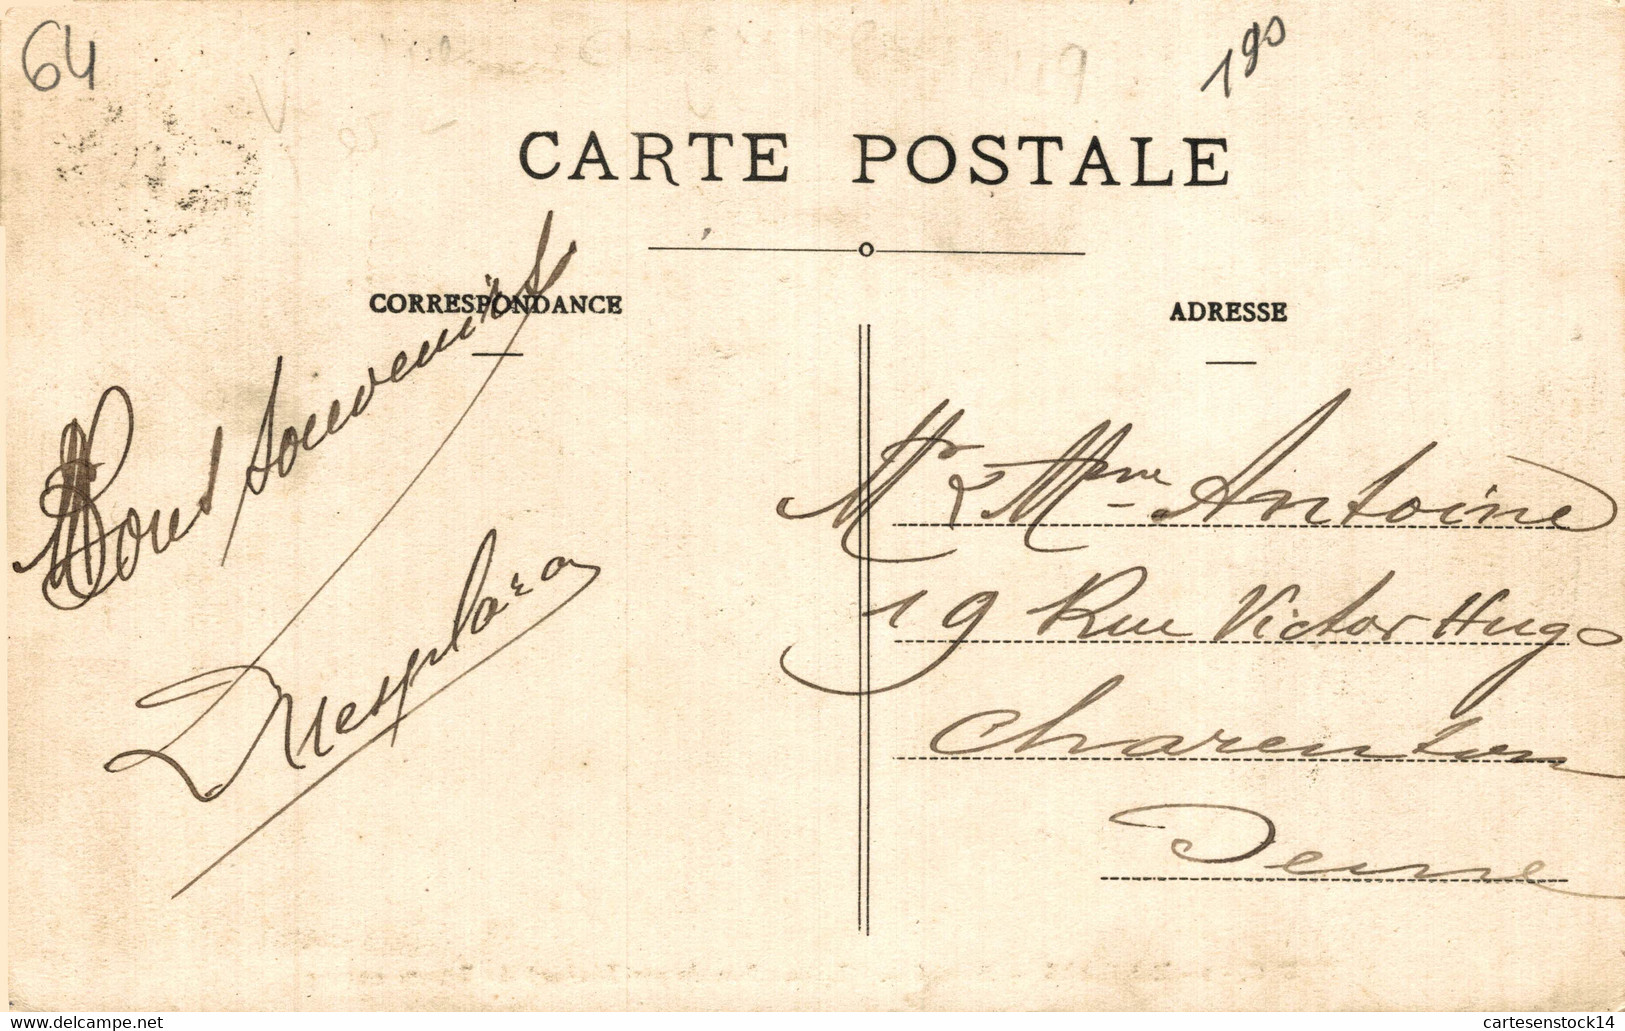 64
190
CARTE POSTALE
CORRESPONDANCE
ADRESSE
Bons Souvenirs
Mr & Mme Antoine
19 Rue Victor Hugo
Charenton
Seine
www.delcampe.net
cartesenstock14